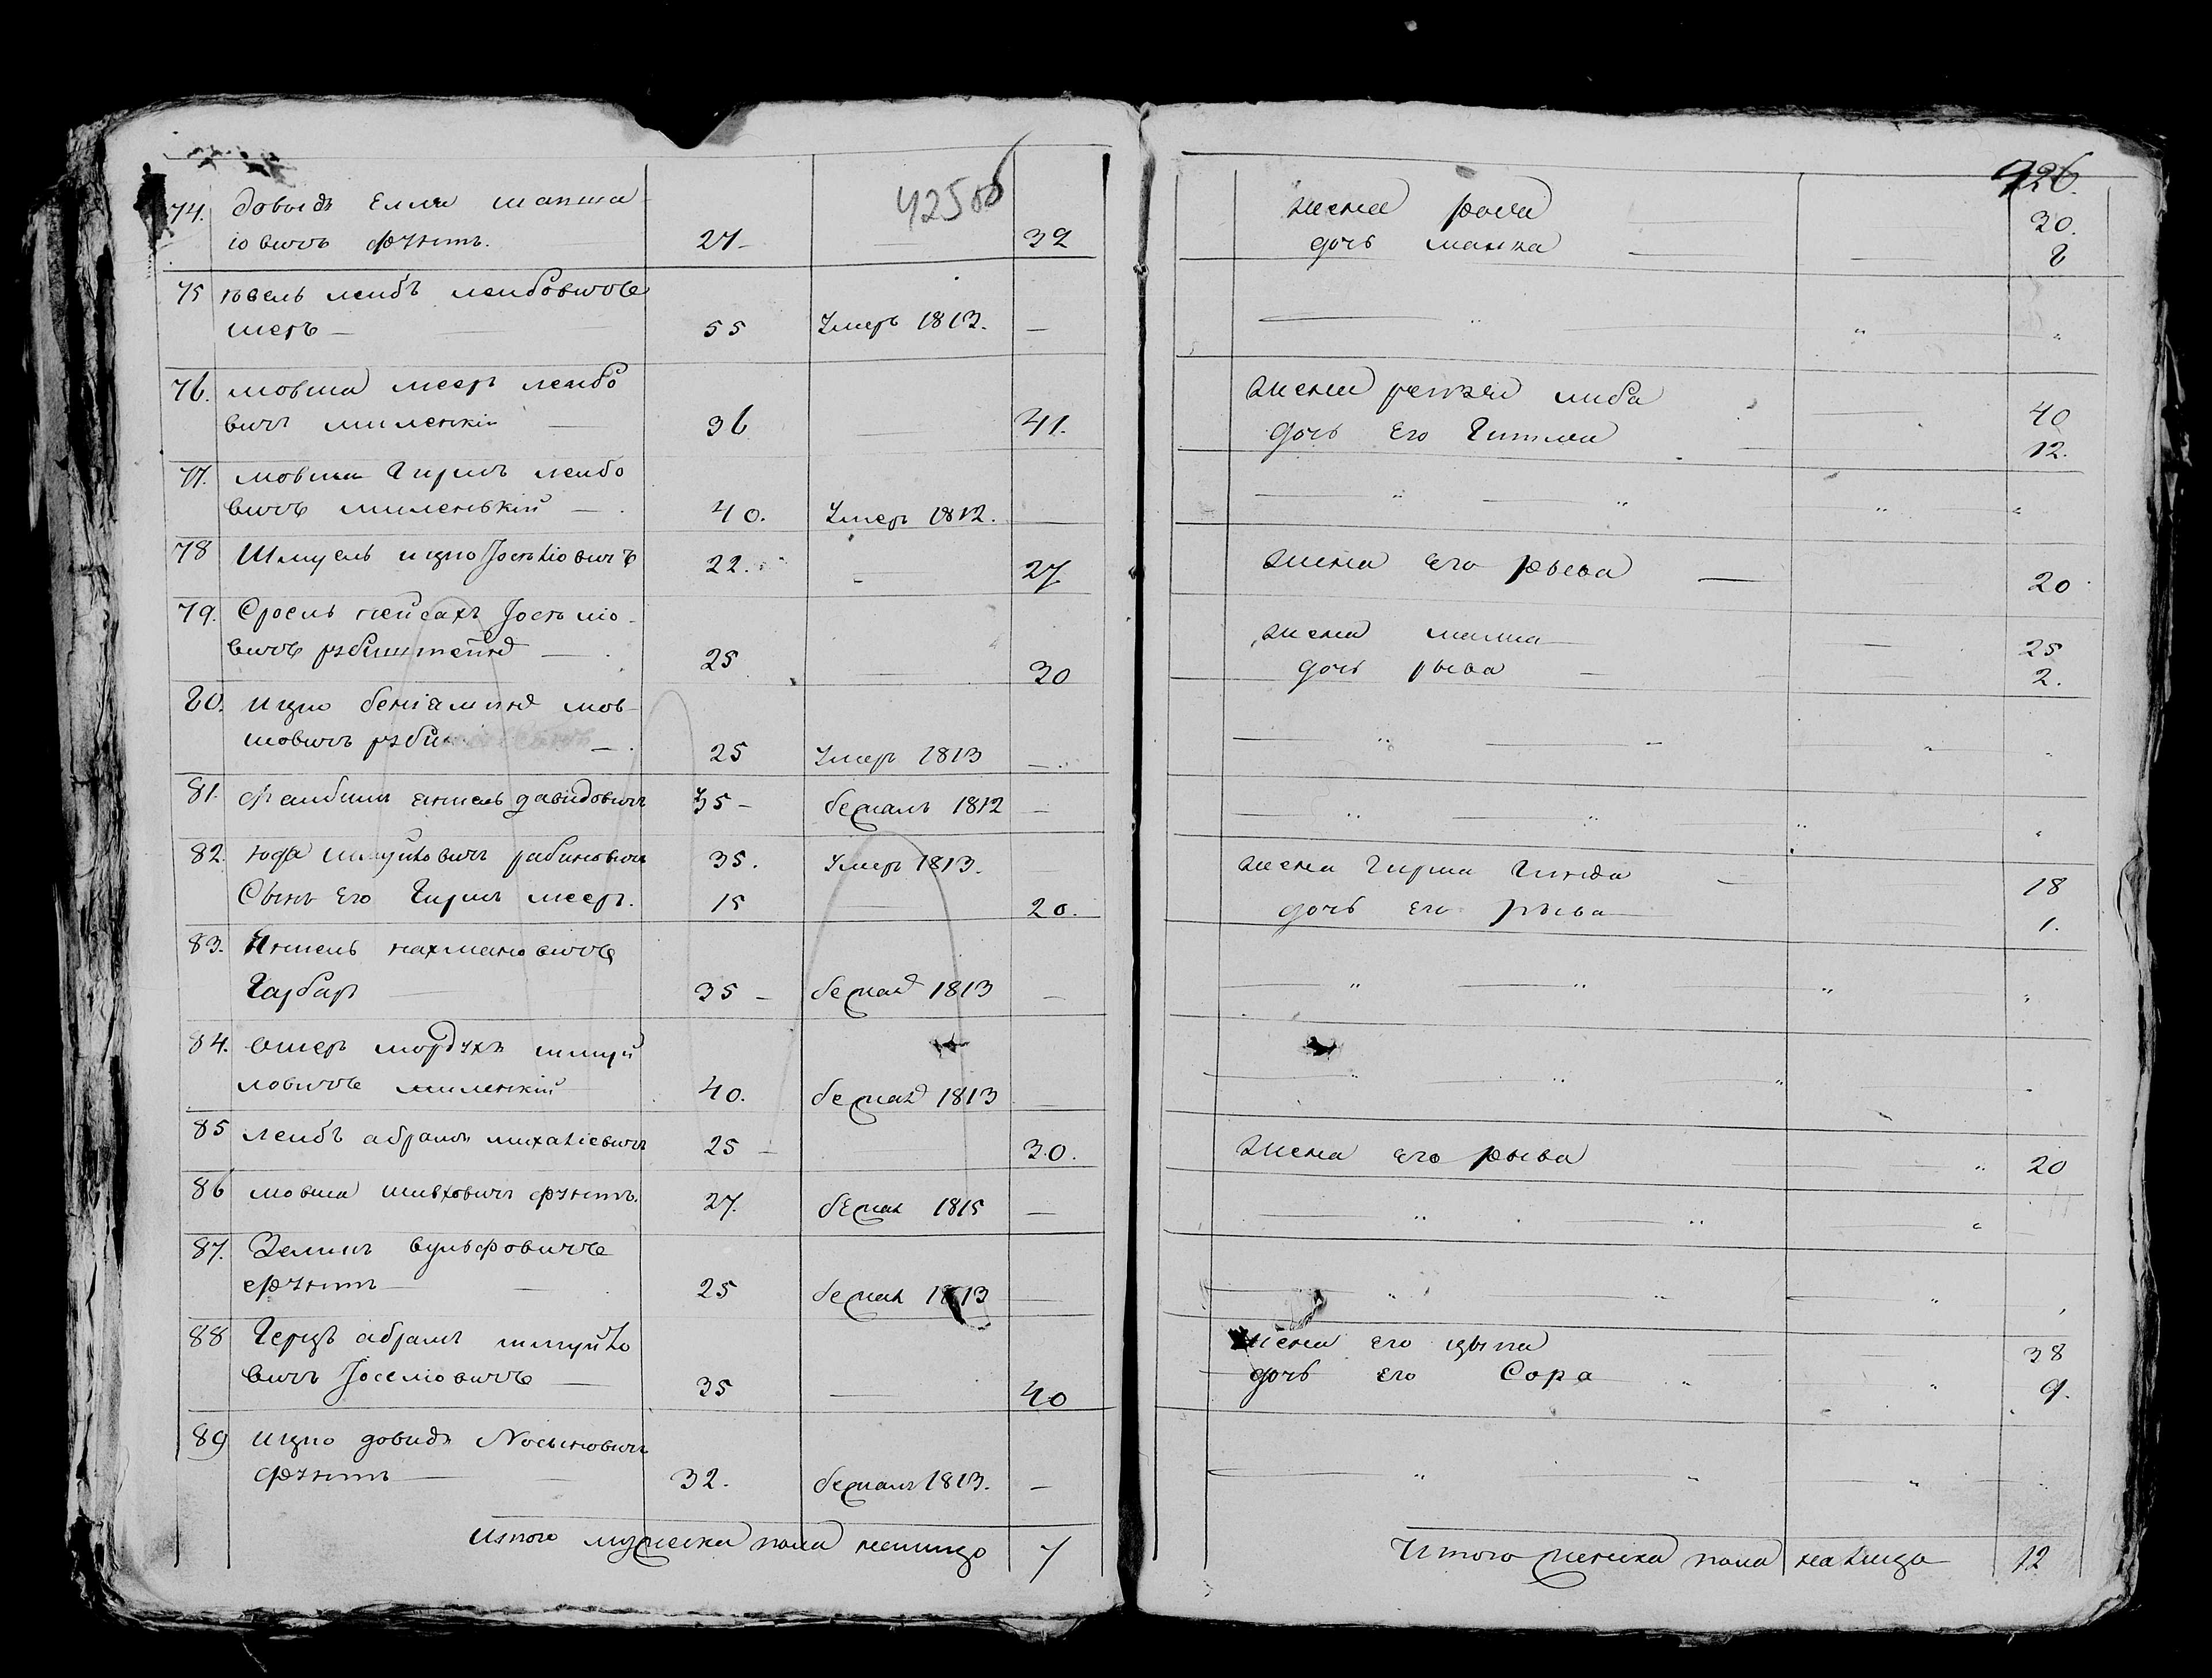 425 об
74. Довыдъ Елля шапша
іовичъ фунтъ. 27 32
75 юсель леибъ леибовичъ
шеръ 55 Умеръ 1812. —
76. мовша мееръ леибо
вичъ миленкіи 36 41.
77. мовша Гиршъ леибо
вичъ миленькій 40. Умеръ 1812. —
78 Шмуель ицко Іоселіовичъ 22. 27
79. Сроель пейсахъ Іосельіо
вичъ рубинштейнъ 25 30
80. ицко беніаминъ мов
шовичъ руби 25 Умеръ 1813 —
81. фаибишъ аншель давидовичъ 35 бежалъ 1812 —
82. юда шмуйловичъ рабиновичъ 35. Умеръ 1813.
Сынъ Его Гиршъ мееръ. 15 20.
83. Яншель нахмановичъ
Гарбаръ 35 бежал 1813 —
84. ошеръ мордухъ шмуй
ловичъ миленкій 40. бежал 1813 —
85 леибъ абрамъ михаліевичъ 25 30.
86 мовша шивховичъ фунтъ. 27. бЕжал 1815 —
87. Зелманъ вульфовичъ
фунтъ 25 бежал 1813 —
88 Герцъ абрамъ шмуйло
вичъ Іоселіовичъ 35 40
89 ицко довидъ Носыновичъ
фунтъ 32. бежалъ 1813. —
Итого мужеска пола налицо 7
426.
жена роха 30.
дочь малка 8
жена рейзя либа 40
дочь Его Гитля 12.
жена его рыва 20
жена малка 25
дочь рыва 2.
жена Гирша Гинда 18
дочь его рыва 1.
жена его рыва 20
жена его цыпа 38
дочь Его Сора 9.
Итого женска пола налицо 12